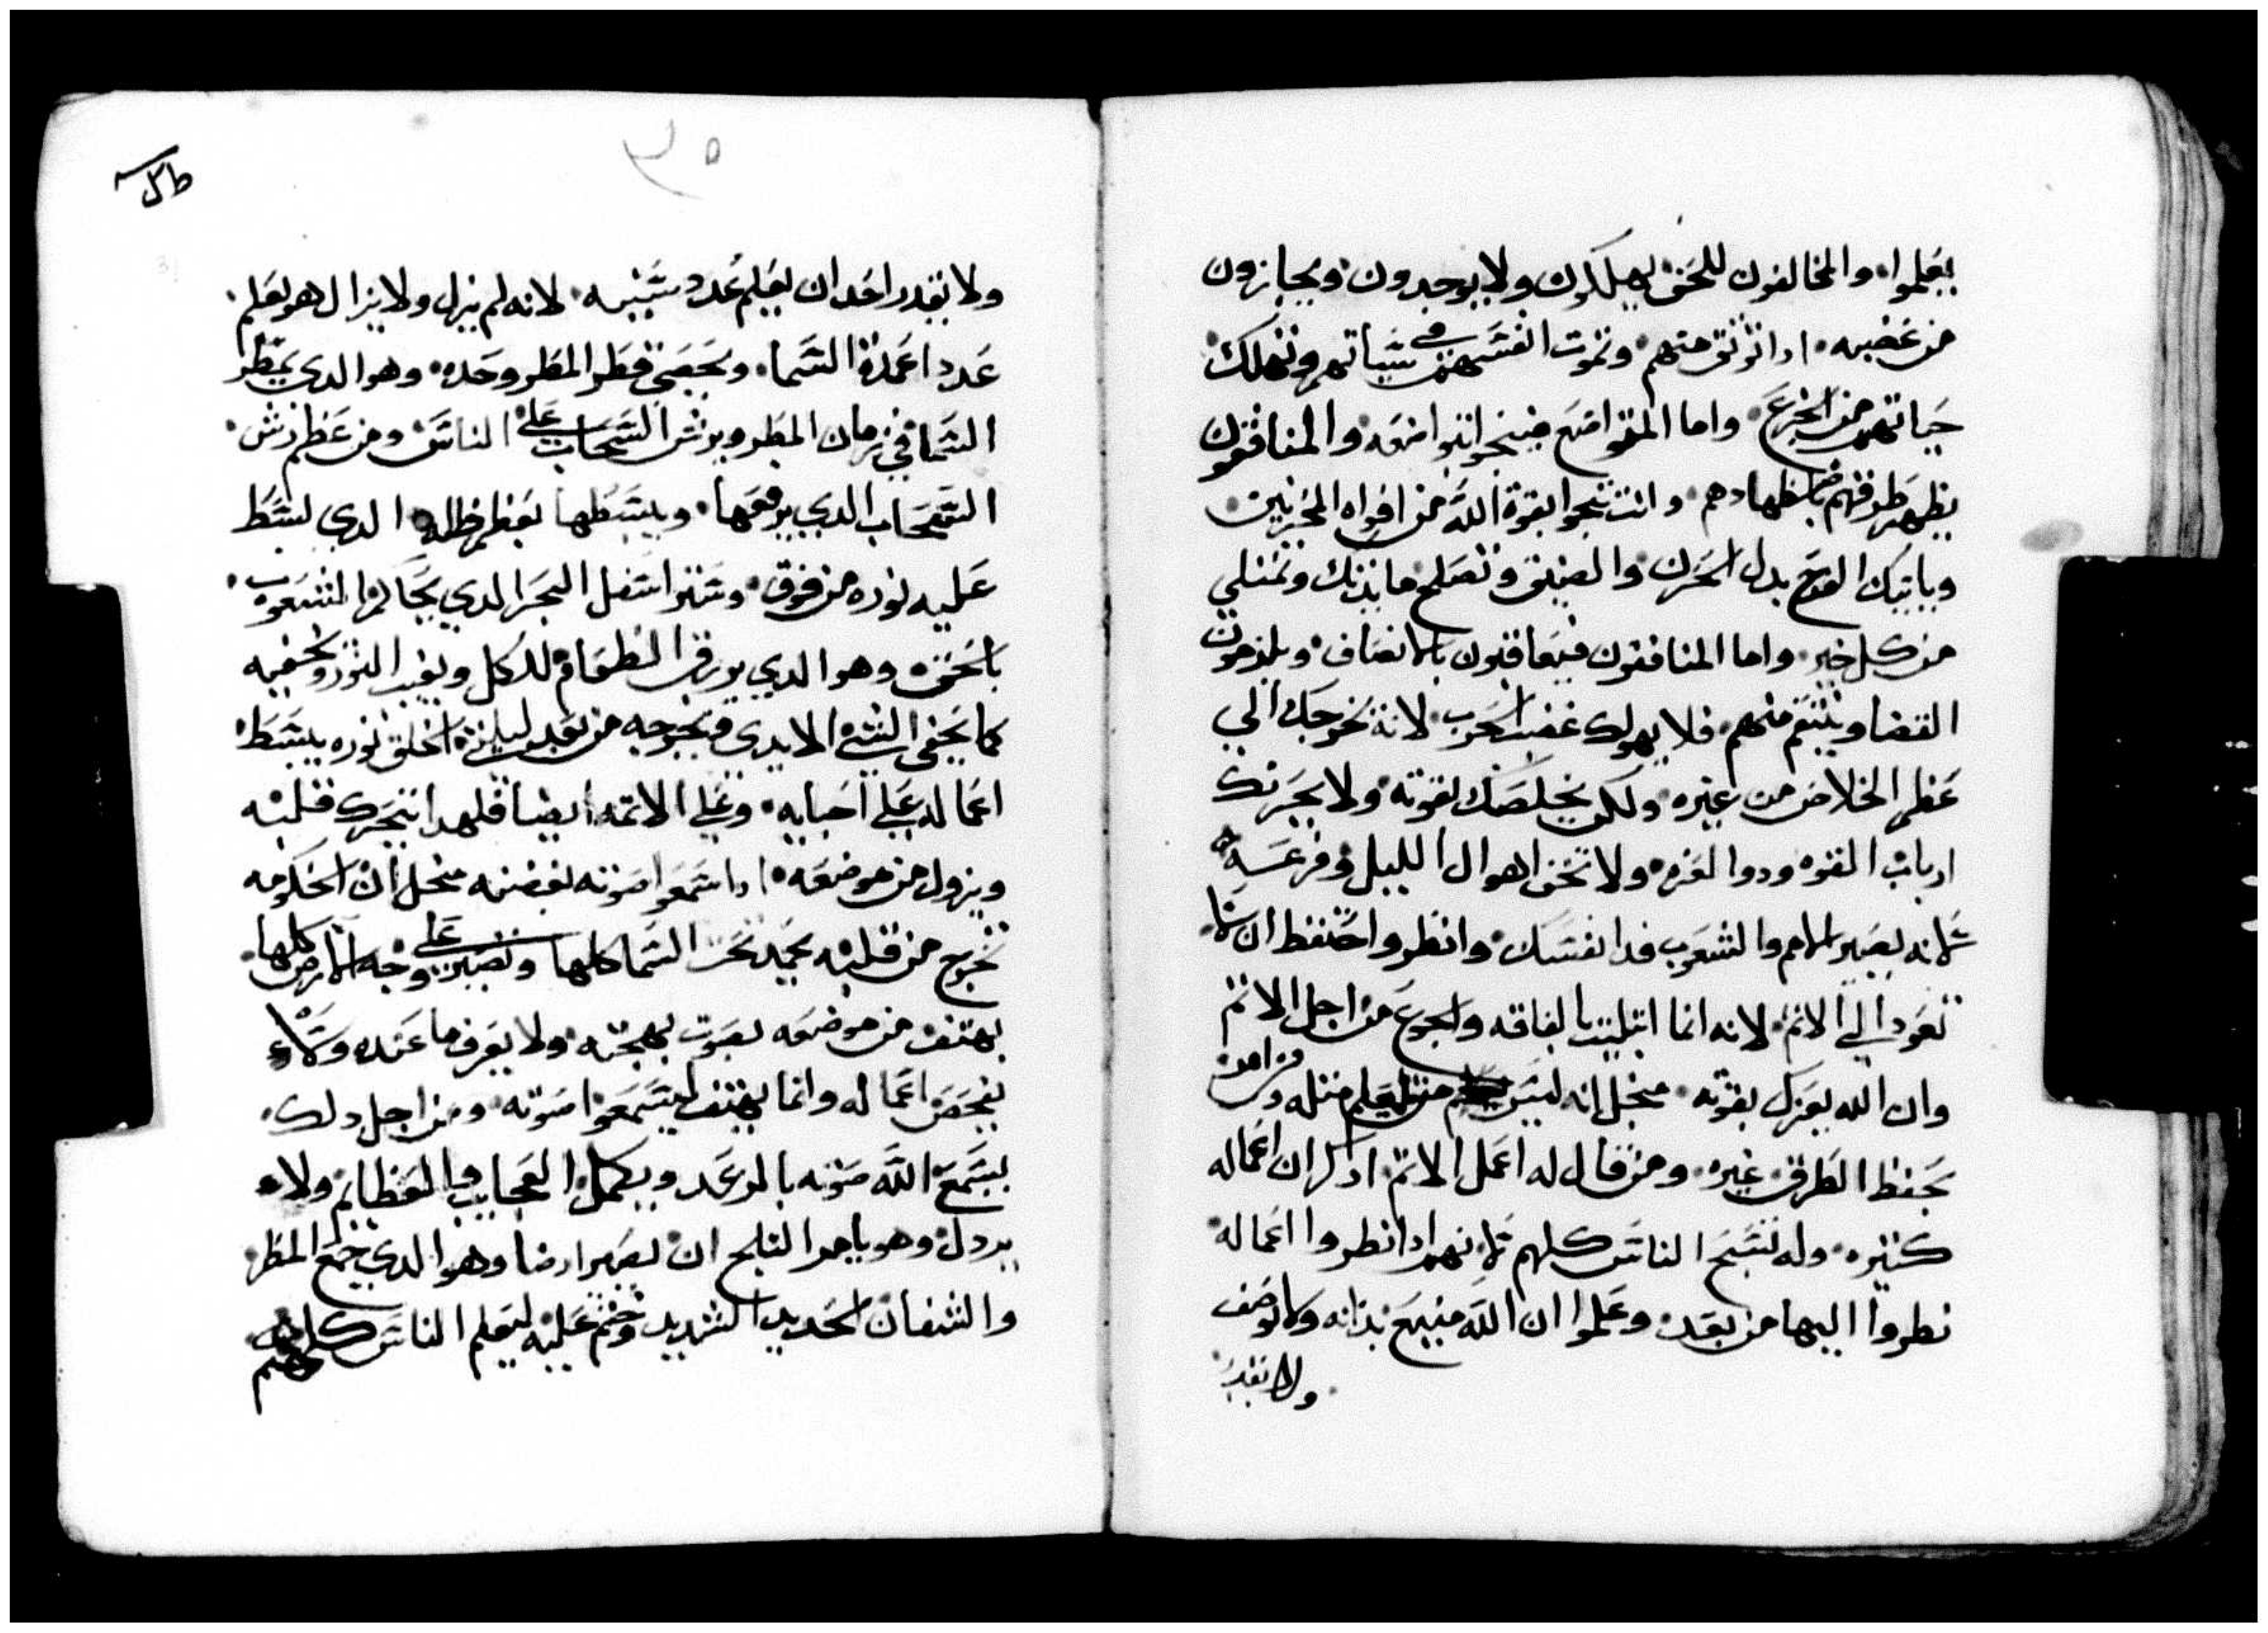 يعلموا والمخالفون للحق يهلكون ولا يوجدون ويجازون
من غضبه ادا توثق منهم وتموت انفسهم في شبابهم وتهلك
حياتهم من الجزع واما المتواضع فينجوا بتواضعه والمنافقون
يظهر طرقهم باضطهادهم وانت تنجوا بقوة الله من افواه المحزنين
وياتيك الفرح بدل الحزن والضيق وتصلح مايدتك وتمتلي
من كل خير واما المنافقون فيعاقبون بالانصاف ويلزمون
القضا وينتقم منهم فلا يهولك غضب الحرب لانه يخرجك الي
عظم الخلاص من غيره ولكن يخلصك لقوته ولا يحزنك
ارباب القوه ودوا العزه ولا تخف اهوال الليل وفزعه
لانه يصير الامم والشعوب فدا نفسك وانظر واحتفظ ان لا
تعود الي الاثم لانه انما ابتليت بالفاقه والجوع من اجل الاثم
وان الله يعزك بقوته منجل انه ليس من يعلم مثله ومن امن
يحفظ الطرق غيره ومن قال له اعمل الاثم ادكر ان اعماله
كثيره وله تسبح الناس كلهم لانهم ادا نظروا اعماله
نطروا اليها من بعد وعلموا ان الله منيع بذاته ولا يوصف
ولا يقدر
٣٥
ولا يقدر احد ان يعلم عدد سنينه لانه لم يزل ولا يزال هو يعلم
عدد اعمدة السما ويحصي قطر المطر وحده وهو الدي يمطر
السما في زمان المطر ويرش السحاب علي الناس ومن عظم رش
السحاب الدي يرفعها ويبسطها بعظم ظله الدي بسط
عليه نوره من فوق وستر اسفل البحر الدي يحاكم الشعوب
بالحق وهو الدي يرزق الطعام للكل ويغيب النور ويخفيه
كما يخفي الشي الايدي ويخرجه من بعد الخلق نوره يبسط
اعماله علي احبايه وعلي الاتمه ايضا فلهدا يتحرك قلبه
ويزول من موضعه ادا سمعوا صوته بغضبه منجل ان الحكومه
تخرج من قلبه يجيد تحت السما كلها وتصير علي وجه الارض كلها
يهتف من موضعه بصوت بهجته ولا يعرف ما عنده ولا
يفحص اعماله وانما يهتف ليسمعوا صوته ومن اجل دلك
يسمع الله صوته بالرعد ويكمل العجايب والعظايم ولا
يردل وهو يامر الثلج ان يصير ارضا وهو الدي جمع المطر
والشفان الحديد الشديد وختم عليه ليعلم الناس كلهم